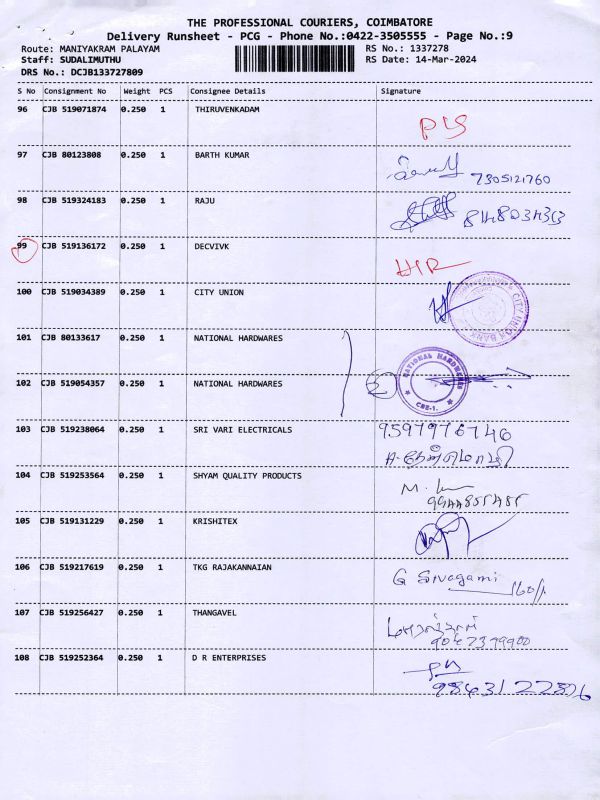 THE PROFESSIONAL COURIERS, COIMBATORE
Delivery Runsheet - PCG - Phone No.:0422-3505555 - Page No.:9
Route: MANIYAKRAM PALAYAM RS No.: 1337278
Staff: SUDALIMUTHU RS Date: 14-Mar-2024
DRS No.: DCJB133727809
S No Consignment No Weight PCS Consignee Details Signature
96 CJB 519071874 0.250 1 THIRUVENKADAM
97 CJB 80123808 0.250 1 BARTH KUMAR
7305121760
98 CJB 519324183 0.250 1 RAJU
99 CJB 519136172 0.250 1 DECVIVK
100 CJB 519034389 0.250 1 CITY UNION
CITY UNION BANK
101 CJB 80133617 0.250 1 NATIONAL HARDWARES
102 CJB 519054357 0.250 1 NATIONAL HARDWARES
2
NATIONAL HARDWARES
103 CJB 519238064 0.250 1 SRI VARI ELECTRICALS
9597976746
104 CJB 519253564 0.250 1 SHYAM QUALITY PRODUCTS
105 CJB 519131229 0.250 1 KRISHITEX
106 CJB 519217619 0.250 1 TKG RAJAKANNAIAN
G Sivagami
107 CJB 519256427 0.250 1 THANGAVEL
108 CJB 519252364 0.250 1 D R ENTERPRISES